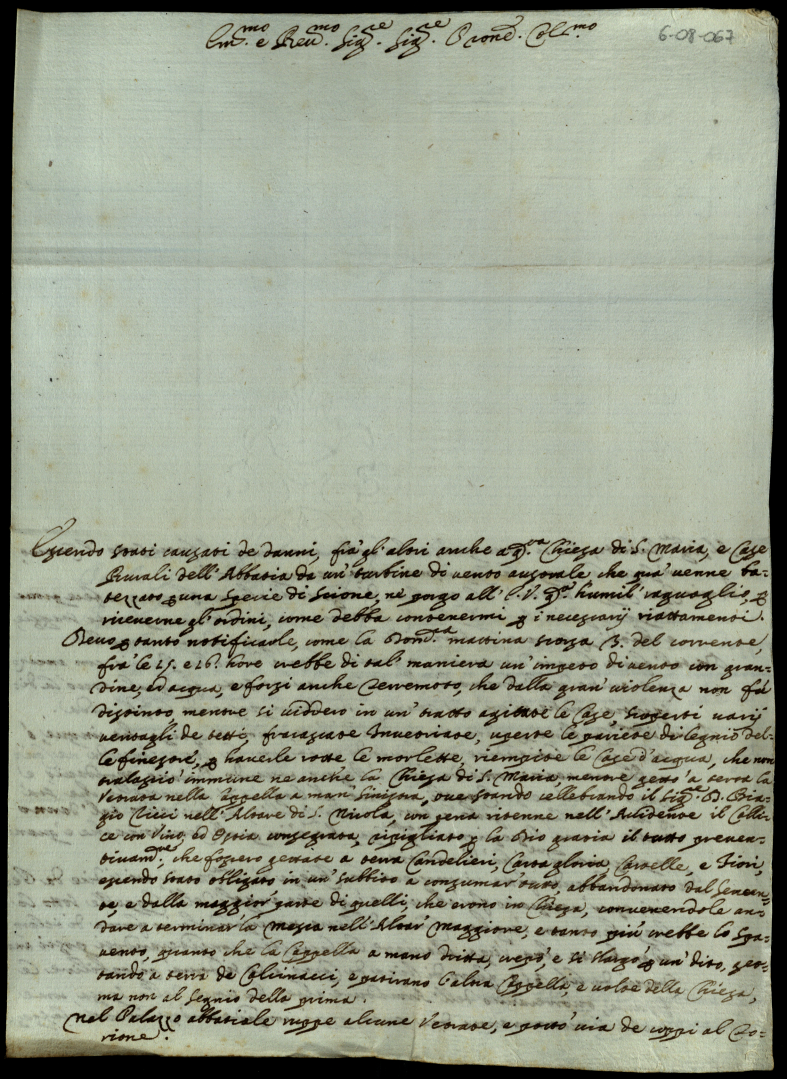 Em.mo e Reu.mo Sig.re Sig.re Prone. Col.mo
6-08-067
Essendo stati causati de danni, frà gl'altri anche a q.ta Chiesa di S. Maria, e Case
Rurali dell'Abbatia da un turbine di vento australe, che quà venne ba-
tezzato p una specie di Scione, nè porgo all' E.V. q.to humil' raguaglio, p
riceverne gl'ordini, come debba contenermi p i necessarij riattamenti.
Devo p tanto notificarle, come la Dom.ca mattina scorsa 3. del corrente,
frà le 15. e 16. hore crebbe di tal' maniera un' impeto di vento con gran-
dine, ed acqua, e forsi anche Terremoto, che dalla gran' violenza non fù
distinto, mentre si viddero in un' tratto agitate le Case, scoperti varij
ventagli de tetti, fracassate Invetriate, aperte le pariete di legnio del-
le finestre, p haverle rotte le morlette, riempite le Case d'acqua, che non
tralasciò immune ne anche la Chiesa di S. Maria, mentre gettò a terra la
Vetrata nella Cappella a man' sinistra, ove stando cellebrando il Sig.re D. Bia-
gio Cicci nell'Altare di S. Nicola, con pena ritenne nell'Accidente il Calli-
ce con Vino, ed Ostia consegrata, ripigliato p la Dio gratia il tutto preven-
tivam.te, che fossero gettate a terra Candelieri, Carta gloria, Cartelle, e Fiori,
essendo stato obligato in un' subbito a consumar' tutto, abbandonato dal Serven-
te, e dalla maggior' parte di quelli, che erono in Chiesa, convenendole an-
dare a terminar' la messa nell'Altar' Maggiore, e tanto più crebbe lo spa-
vento, quanto che la Cappella a mano dritta, crepò, e si slargò p un' dito, get-
tando a terra de Calcinacci, e patirano l'altra Cappella, e volte della Chiesa,
ma non al segnio della prima.
Nel Palazzo abbatiale ruppe alcune Vetrate, e portò via de coppi al To-
rione.